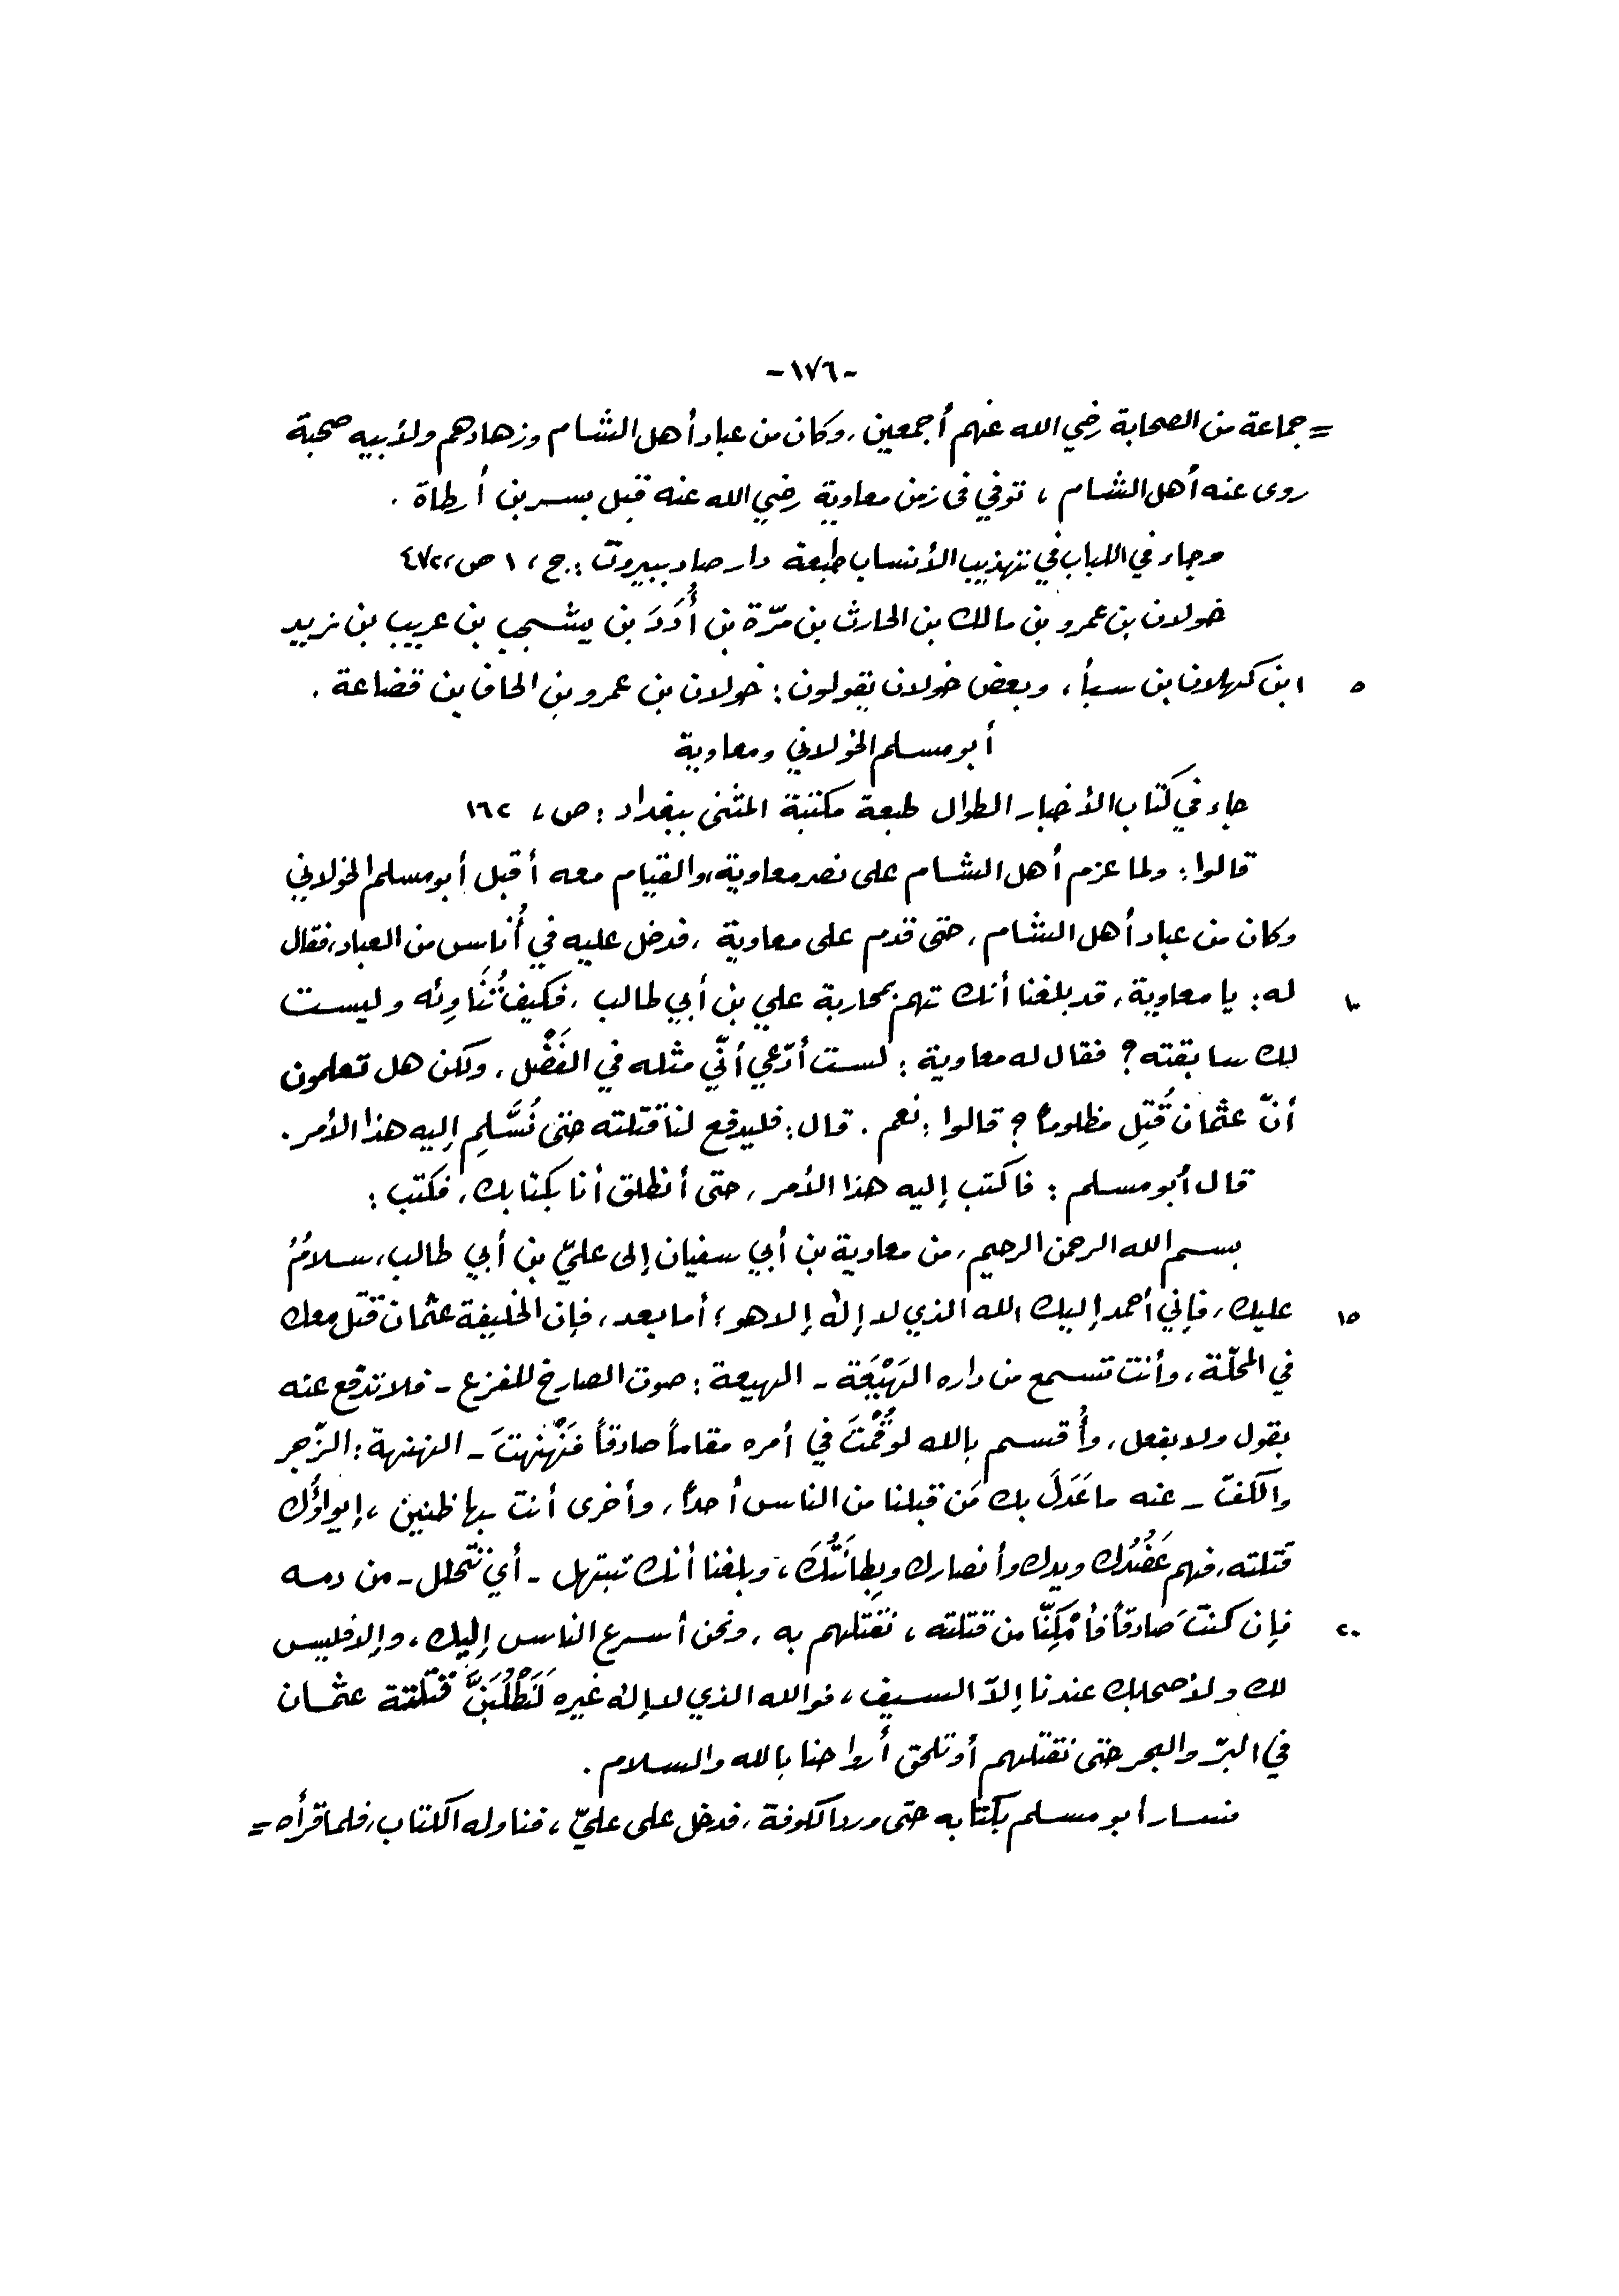 -١٧٦-
= جماعة من الصحابة رضي الله عنهم أجمعين، وكان من عباد أهل الشام وزهادهم ولأبيه صحبة
روى عنه أهل الشام، توفي في زمن معاوية رضي الله عنه قبل بسر بن أرطاة.
وجاء في اللباب في تهذيب الأنساب طبعة دار صادر ببيروت: ج، ١ ص، ٤٧٢
خولان بن عمرو بن مالك بن الحارث بن مرّة بن أُدَدَ بن يشجب بن عريب بن زيد
٥ ابن كهلان بن سبأ، وبعض خولان يقولون: خولان بن عمرو بن الحاف بن قضاعة.
أبو مسلم الخولاني ومعاوية
جاء في كتاب الأخبار الطوال طبعة مكتبة المثنى ببغداد: ص، ١٦٢
قالوا: ولما عزم أهل الشام على نصر معاوية، والقيام معه أقبل أبو مسلم الخولاني
وكان من عباد أهل الشام، حتى قدم على معاوية، فدخل عليه في أُناس من العباد، فقال
١٠ له: يا معاوية، قد بلغنا أنك تهم بمحاربة علي بن أبي طالب، فكيف تُنَاوِئه وليست
لك سابقته؟ فقال له معاوية: لست أدّعي أنّي مثله في الفَضْل، ولكن هل تعلمون
أنّ عثمان قُتِل مظلوماً؟ قالوا: نعم. قال: فليدفع لنا قتلته حتى نُسَّلِم إليه هذا الأمر.
قال أبو مسلم: فاكتب إليه هذا الأمر، حتى أنطلق أنا بكتابك، فكتب:
بسم الله الرحمن الرحيم، من معاوية بن أبي سفيان إلى عليّ بن أبي طالب، سلامٌ
١٥ عليك، فإني أحمد إليك الله الذي لا إله إلا هو؛ أما بعد، فإن الخليفة عثمان قتل معك
في المحلّة، وأنت تسمع من داره الهَيْعَة - الهيعة: صوت الصارخ للفزع - فلا تدفع عنه
بقول ولا بفعل، وأُقسم بالله لو قُمْتَ في أمره مقاماً صادقاً فَنَهْنَهتَ - النهنهة: الزّجر
والكفّ - عنه ما عَدَلَ بك مَن قبلنا من الناس أحداً، وأخرى أنت بها ظنين، إيواؤُك
قتلته، فهم عَضُدُك ويدك وأنصارك وبِطانَتُكَ، وبلغنا أنك تبتهل - أي تتحلل - من دمه
٢٠ فإن كنتَ صادقاً فأمْكِنّا من قتلته، نقتلهم به، ونحن أسرع الناس إليك، وإلا فليس
لك ولأصحابك عندنا إلاّ السيف، فوالله الذي لا إله غيره لَنَطْلُبَنَّ قتلتة عثمان
في البرّ والبحر حتى نقتلهم أو تلحق أرواحنا بالله والسلام.
فسار أبو مسلم بكتابه حتى ورد الكوفة، فدخل على عليّ، فناوله الكتاب، فلما قرأه =